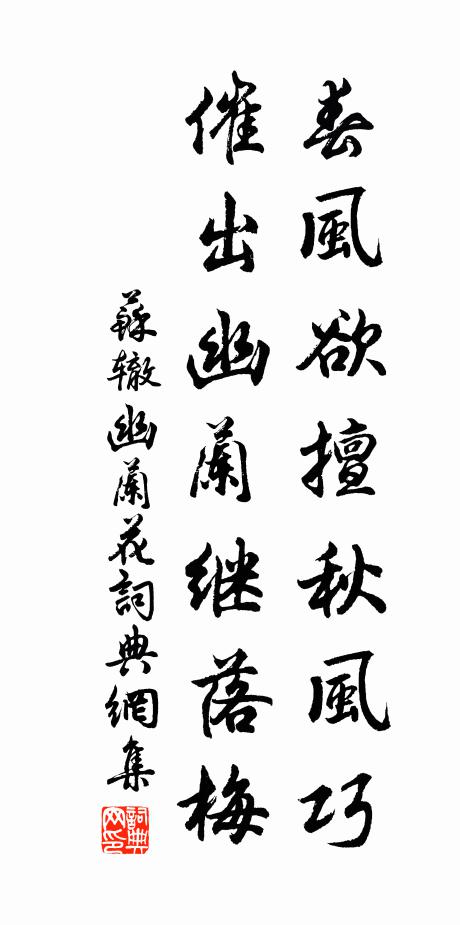 春風欲擅秋風巧
催出幽蘭継落梅
蘇辙幽蘭花詞典網集
詞典網印